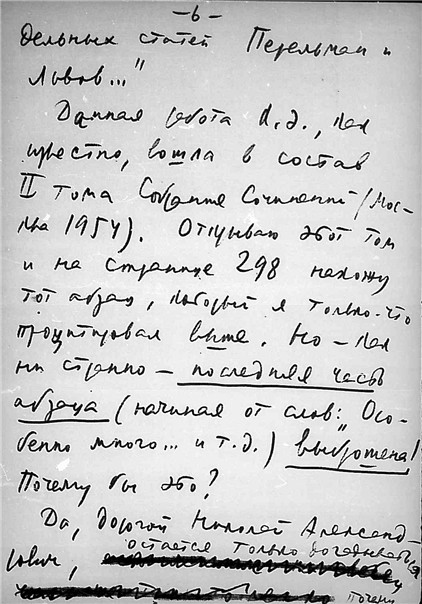 –6–
дельных статей Перельман и
Львов..."
Данная работа К.Э., как
известно, вошла в состав
II тома Собрание Сочинений (Мос-
ква 1954). Открываю этот том
и на странице 298 нахожу
тот абзац, который я только-что
процитировал выше. Но – как
ни странно – последняя часть
абзаца (начиная от слов: "Осо-
бенно много... и т.д.") выброшена!
Почему бы это?
Да, дорогой Николай Александ-
остается только догадываться
рович,
почему